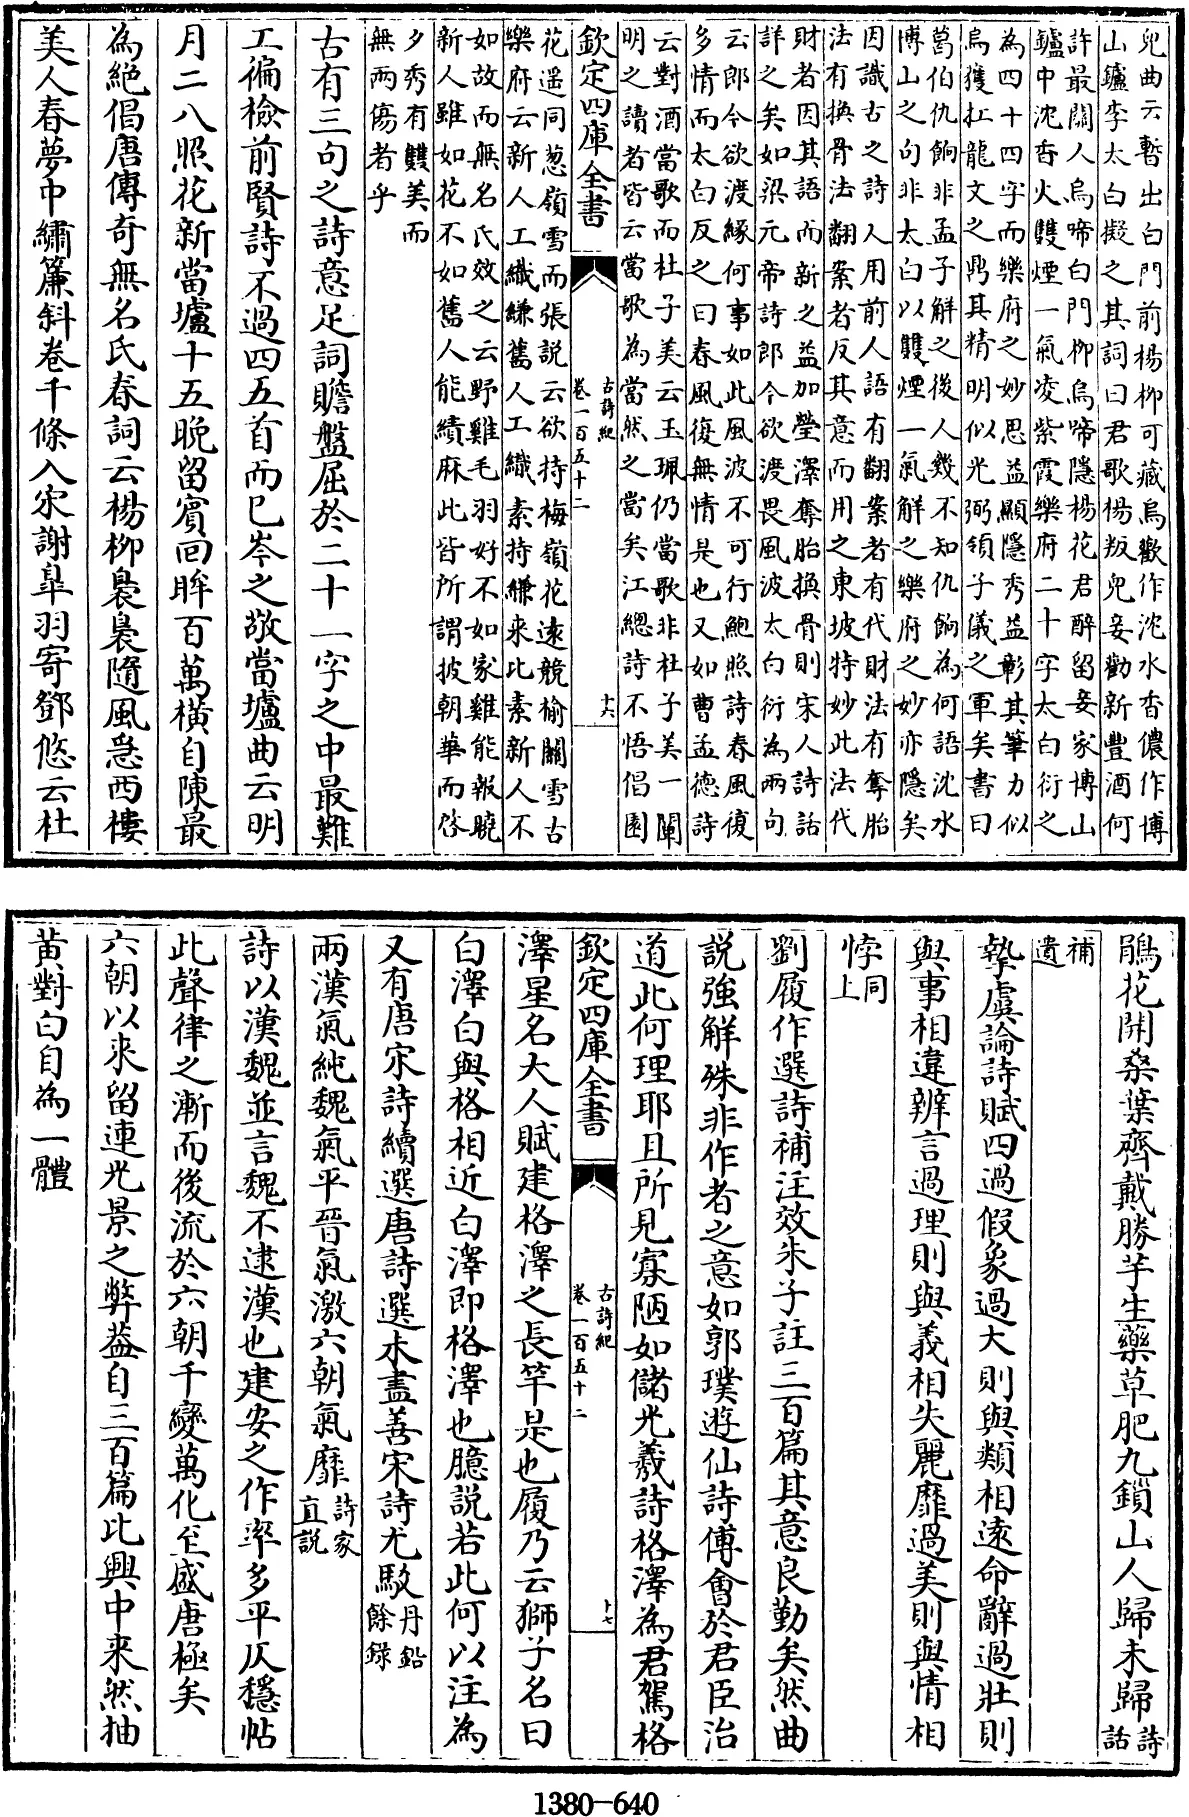 兒曲云暫出白門前楊柳可藏烏歡作沈水香儂作博
山鑪李太白擬之其詞曰君歌楊叛兒妾勸新豐酒何
許最關人烏啼白門柳烏啼隱楊花君醉留妾家博山
鑪中沈香火雙煙一氣凌紫霞樂府二十字太白衍之
為四十四字而樂府之妙思益顯隱秀益彰其筆力似
烏獲扛龍文之鼎其精明似光弼領子儀之軍矣書曰
葛伯仇餉非孟子解之後人幾不知仇餉為何語沈水
博山之句非太白以雙煙一氣解之樂府之妙亦隱矣
因識古之詩人用前人語有翻案者有代財法有奪胎
法有換骨法翻案者反其意而用之東坡特妙此法代
財者因其語而新之益加瑩澤奪胎換骨則宋人詩話
詳之矣如梁元帝詩郎今欲渡畏風波太白衍為兩句
云郎今欲渡緣何事如此風波不可行鮑照詩春風復
多情而太白反之曰春風復無情是也又如曹孟德詩
云對酒當歌而杜子美云玉珮仍當歌非杜子美一闡
明之讀者皆云當歌為當然之當矣江總詩不悟倡園
欽定四庫全書
古詩紀
卷一百五十二
十六
花遥同葱嶺雪而張説云欲持梅嶺花遠競榆關雪古
樂府云新人工織縑舊人工織素持縑来比素新人不
如故而無名氏效之云野雞毛羽好不如家雞能報曉
新人雖如花不如舊人能績麻此皆所謂披朝華而啓
夕秀有雙美而
無兩傷者乎
古有三句之詩意足詞贍盤屈於二十一字之中最難
工徧檢前賢詩不過四五首而已岑之敬當壚曲云明
月二八照花新當壚十五晚留賓回眸百萬橫自陳最
為絶倡唐傳奇無名氏春詞云楊柳裊裊隨風急西樓
美人春夢中繡簾斜卷千條入宋謝臯羽寄鄧悠云杜
鵑花開桑葉齊戴勝芋生藥草肥九鎖山人歸未歸
詩
話
補
遺
摯虞論詩賦四過假象過大則與類相遠命辭過壯則
與事相違辨言過理則與義相失麗靡過美則與情相
悖
同
上
劉履作選詩補注效朱子註三百篇其意良勤矣然曲
説強解殊非作者之意如郭璞遊仙詩傅會於君臣治
道此何理耶且所見寡陋如儲光羲詩格澤為君駕格
欽定四庫全書
古詩紀
卷一百五十二
十七
澤星名大人賦建格澤之長竿是也履乃云獅子名曰
白澤白與格相近白澤即格澤也臆説若此何以注為
又有唐宋詩續選唐詩選未盡善宋詩尤駁
丹鉛
餘録
兩漢氣純魏氣平晉氣激六朝氣靡
詩家
直説
詩以漢魏並言魏不逮漢也建安之作率多平仄穩帖
此聲律之漸而後流於六朝千變萬化至盛唐極矣
六朝以来留連光景之弊葢自三百篇比興中来然抽
黄對白自為一體
1380-640